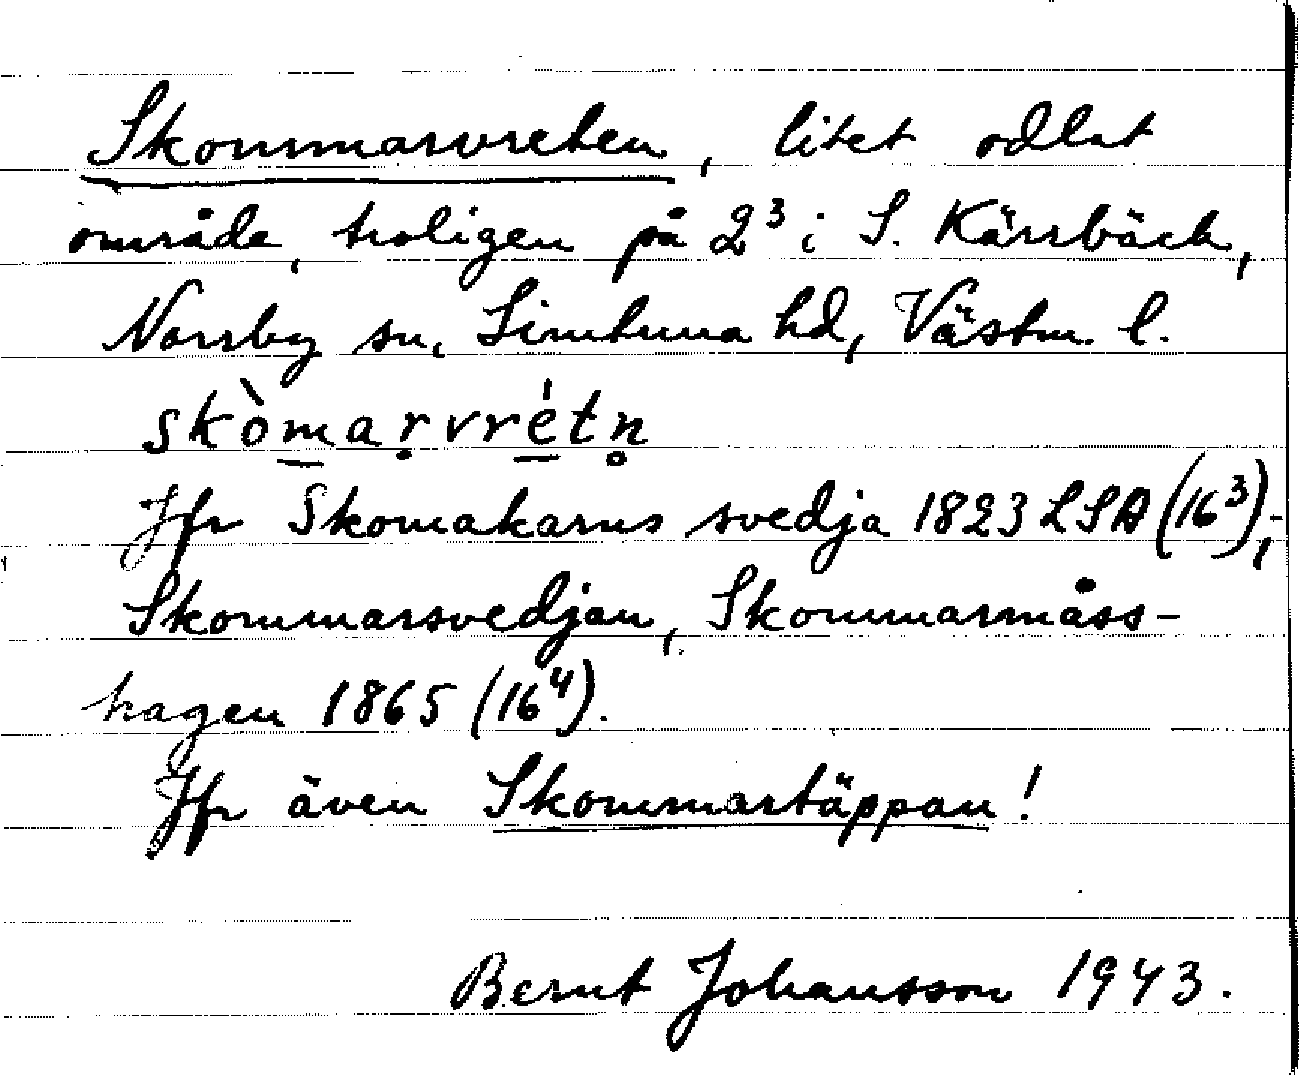 Skommarvreten, litet odlat
område, troligen på 2³ i S. Kärrbäck,
Norrby sn, Simtuna hd, Västm. l.
skòmaṛvrétn̥
Jfr Skomakarns svedja 1823 LSA (16³);
Skommarsvedjan, Skommarmåss-
hagen 1865 (16⁴).
Jfr även Skommartäppan!
Bernt Johansson 1943.